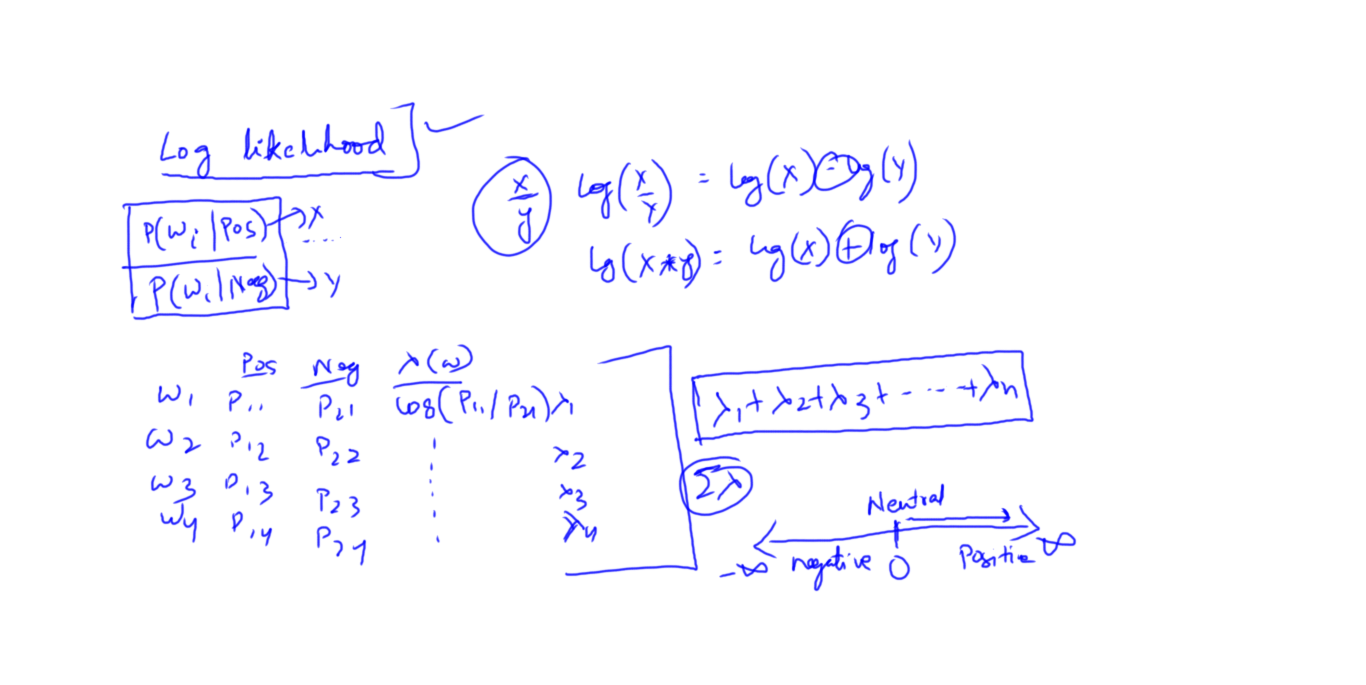 Log likelihood
P(Wi|Pos) → X
P(Wi|Neg) → Y
x/y log(x/y) = log(x) - log(y)
lg(x*y) = log(x) + log(y)
Pos Neg λ(w)
W1 P11 P21 log(P11/P21) λ1
W2 P12 P22 λ2
W3 P13 P23 λ3
W4 P14 P24 λ4
λ1+λ2+λ3+-----+λn
Σλ
Neutral
-∞ negative 0 Positie ∞